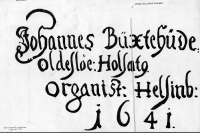 Johannes Büxtehüde:
oldesloe: Holsatꝰ
Organist: Helsinb:
1641